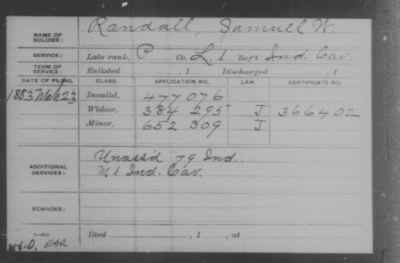 NAME OF SOLDIER: Randall, Samuel W.
SERVICE: Late rank, P Co. L 1 Reg't Ind. Cav.
TERM OF SERVICE: Enlisted , 1 Discharged , 1
DATE OF FILING. CLASS. APPLICATION NO. LAW. CERTIFICATE NO.
1883 Invalid, 477 076
Widow, 384 295 J 366402
Minor, 652 309 J
ADDITIONAL SERVICES: Unass'd 79 Ind.
1 Ind. Cav.
REMARKS:
Died , 1 , at